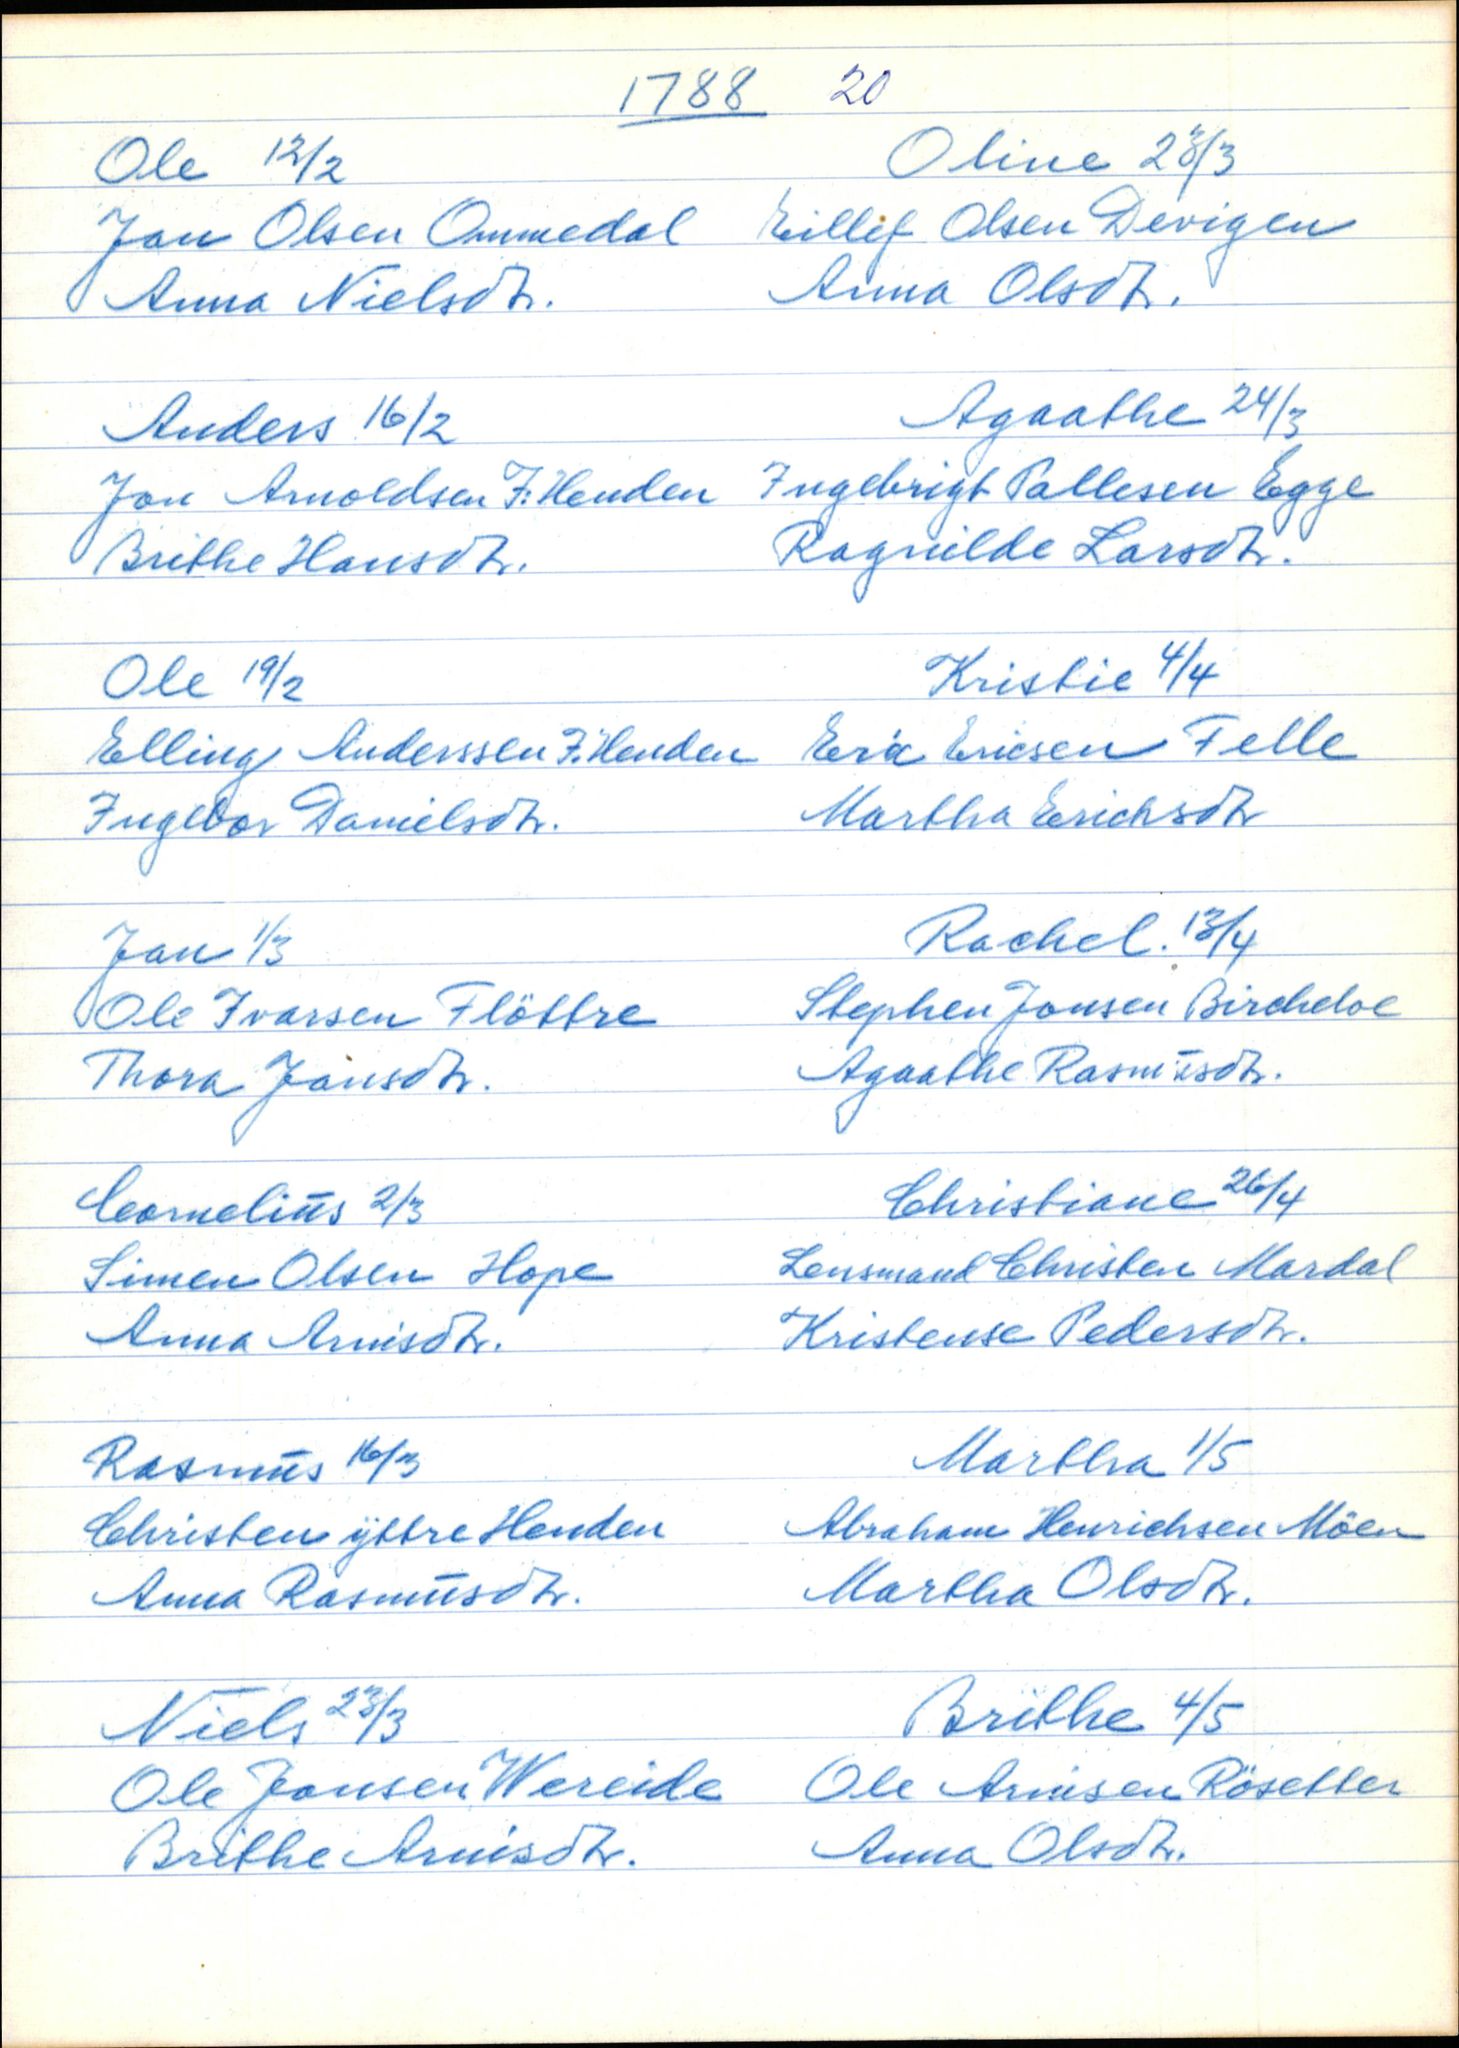 1788 20
Ole 12/2
Jan Olsen Ommedal
Anna Nielsdtr.
Anders 16/2
Jon Arnoldsen F: Henden
Brithe Hansdtr.
Ole 19/2
Elling Anderssen F. Henden
Ingebor Danielsdtr.
Jan 1/3
Ole Ivarsen Flöttre
Thora Jansdtr.
Cornelius 2/3
Simen Olsen Hope
Anna Arnisdtr.
Rasmus 16/3
Christen ÿttre Henden
Anna Rasmusdtr.
Niels 23/3
Ole Jansen Wereide
Brithe Arnisdtr.
Oline 23/3
Eillef Olsen Devigen
Anna Olsdtr.
Agaathe 24/3
Ingebrigt Pallesen Egge
Ragnilde Larsdtr.
Kristie 4/4
Eric Ericsen Felle
Martha Erichsdtr
Rachel. 13/4
Stephen Jonsen Bircheloe
Agaathe Rasmusdtr.
Christiane 26/4
Lensmand Christen Mardal
Kristense Pedersdtr.
Martha 1/5
Abraham Henrichsen Möen
Martha Olsdtr.
Brithe 4/5
Ole Arnisen Rösetter
Anna Olsdtr.